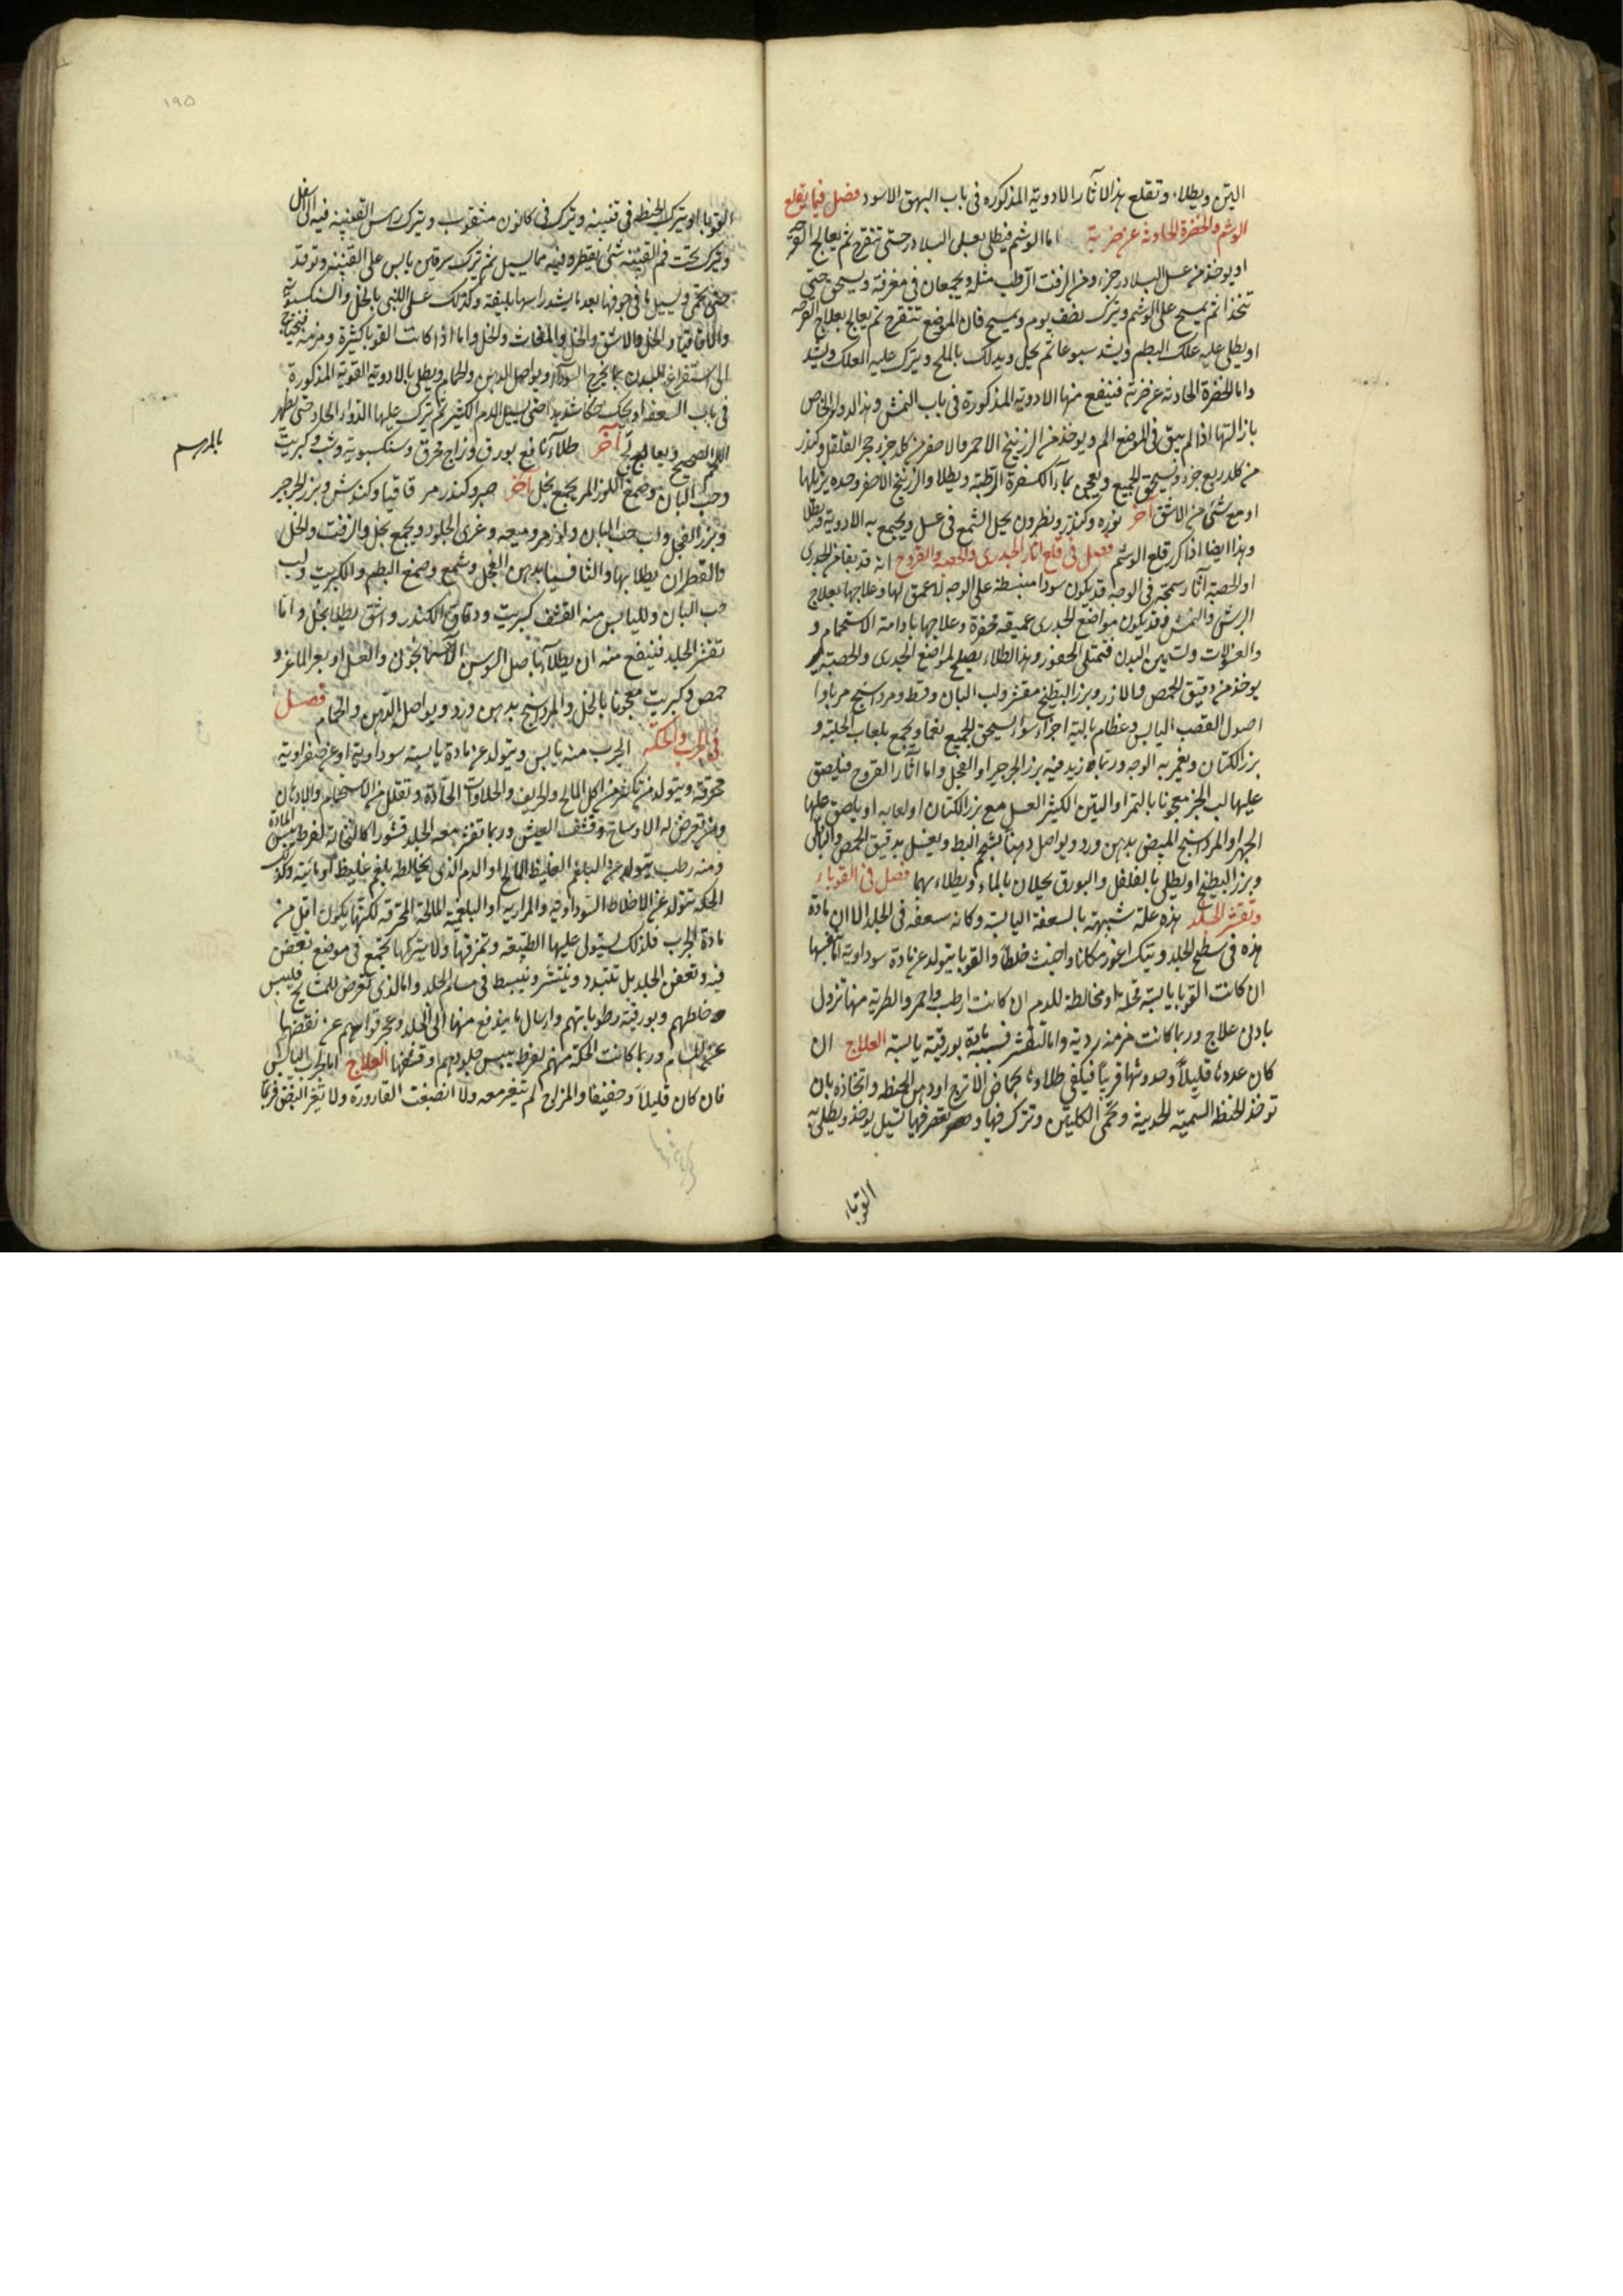 التين ويطلاء وتقلع هذه الاثار الادوية المذكوره فى باب البهق الاسود فصل فيما يقلع
الوشم والخضرة الحادثة عن ضربة اما الوشم فيطلى بعسل البلادر حتى تتقرح ثم يعالج القرحه
او يوخذ من عسل البلادر جزء ومن الزفت الرطب مثله ويجمعان فى مغرفة ويسحق حتى
تتخذا ثم يمسح على الوشم ويترك نصف يوم ويمسح فان الموضع تتقرح ثم يعالج بعلاج القرحه
او يطلى عليه علك البطم ويشد سبوعا ثم يحل ويدلك بالملح ويترك عليه العلك ويشد
واما الخضرة الحادثه عن ضربة فينفع منها الادوية المذكورة فى باب النمش وهذا الدواء الخاص
بازالتها اذا لم يبق فى الموضع الم ويوخذ من الزرنيخ الاحمر والاصفر من كله جزء حجر الفلفل وكندر
من كله ربع جزء ويسحق الجميع ويعجن بماء الكسفرة الرطبة ويطلا والزرنيخ الاصفر وحده يزيلها
او مع شئ من الاشق آخر نوره وكندر ونطرون يحل الشمع فى عسل ويجمع به الادوية ويطلا
وهذا ايضا اذا كرر قلع الوشم فصل فى قلع اثار الجدرى والحصبه والقروح انه قد يبقا من الجدرى
او الحصبة آثار سمجه فى الوجه قد يكون سودا منبسطة على الوجه لا عمق لها وعلاجها بعلاج
البرش والنمش وقد يكون مواضع الجدرى عميقه محفرة وعلاجها بادامة الاستحمام و
والغسولات وتسمين البدن فتمتلى الحفور وهذا الطلاء يصلح لمواضع الجدرى والحصبة
يوخذ من دقيق الحمص والارز وبزر البطيخ مقشر ولب البان وقسط ومرداسنج مربا وا
اصول القصب اليابس وعظام بالية اجزاء سواء يسحق الجميع نعما ويجمع بلعاب الحلبة و
بزر الكتان ويغمر به الوجه وربما زيد فيه بزر الجرجير او الفجل واما اثار القروح فيلصق
عليها لب الخبز معجونا بالتمر او التين الكثير العسل مع بزر الكتان او لعابه او يلصق عليها
الجبر او المرداسنج المبيض بدهن ورد ويواصل دهنا بشحم البط ويغسل بدقيق الحمص والباقلى
وبزر البطيخ او يطلى بالفلفل والبورق يحلان بالماء ويطلاء بهما فصل فى القوباء
وتقشر الجلد هذه علة شبيهة بالسعفة اليابسة وكانه سعفه فى الجلد الا ان مادة
هذه فى سطح الجلد وتيك اغور مكانا واخبث خلطا والقوبا يتولد عن مادة سوداوية اما نفسها
ان كانت القوبا يابسة قحلة او مخالطة للدم ان كانت ارطب واحمر والطرية منها تزول
بادنى علاج وربما كانت مزمنة ردية واما التقشر فسببه مادة بورقية يابسة العلاج ان
كان عددها قليلا وحدوثها قريبا فيكفى طلاوها بحماض الاترج او دهن الحنطه واتخاذه بان
توخذ الحنطه السمينه الحديثة وتحمى الكلبتين وتترك فيها وتعصر فيها تسيل يوخذ ويطلى به
القوباء
١٩٥
القوبا او يترك الحنطه فى قنينه ويترك فى كانون مثقوب ويترك رس القنينه فيه الى اسفل
ويترك تحت فم القنينه شئ يقطره فيه ما يسيل ثم يترك سرقين يابس على القنينه وتوقد
حتى تحمى ويسيل ما فى جوفها بعد ما يشد راسها بليفة وكذلك عسل اللبنى بالخل والسنكسبويه
والاقاقيا والخل والاشق والخل والمغات والخل واما اذا كانت القوبا كثيرة ومزمنه فتحتاج
الى استفراغ للبدن بما يخرج السوداء ويواصل الدهن والحمام ويطلى بالادوية القويه المذكورة
فى باب السعفه او يحك حكا شديدا حتى يسيل الدم الكثير ثم يترك عليها الدواء الحاد حتى يظهر
اللحم الصحيح ويعالج آخر طلاء نافع بورق وزاج محرق وسنكسبويه وشب وكبريت
بالمرهم
وحب البان وصمغ اللوز المر يجمع بخل آخر صبر وكندر مر قاقيا وكندش وبزر الجرجر
وبزر الفجل ولب حب البان وميعه وغرى الجلود ويجمع بخل والزفت والخل
والقطران يطلا بها والثافسيا بدهن الفجل وشمع وصمغ البطم والكبريت ولب
حب البان ولليابس منه القشف كبريت ودقاق الكندر واشق يطلا بخل واما
تقشر الجلد فينفع منه ان يطلاء باصل السوسن الاسمانجونى والعسل او بعر الماعز و
حمص وكبريت معجونا بالخل والمرداسنج بدهن ورد ويواصل الدهن والحمام فصل
فى الجرب والحكة الجرب منه يابس ويتولد عن مادة يابسة سوداوية او عن صفراوية
محرقه ويتولد من تكثر من اكل المالح والحريف والحلاوات الحادة وتقلل من الاستحمام والادهان
ومن تعرض له الاوساخ وقشف العيش وربما تقشر معه الجلد قشورا كالنخالة لفرط يبس المادة
ومنه رطب يتولد عن البلغم الغليظ المالح او الدم الذى يخالطه بلغم غليظ او مائية وكذلك
الحكة تتولد عن الاخلاط السوداويه والمراريه او البلغمية المالحة المحترقه لكنها يكون اقل من
مادة الجرب فلذلك يستولى عليها الطبيعه وتمزقها ولا يتركها تجتمع فى موضع تعفن
فيه وتعفن الجلد بل تتبدد وينتشر وينبسط فى مسام الجلد واما الذى تعرض للمشايخ فليبس
خلطهم وبورقية رطوباتهم وارسال ما يندفع منها الى الجلد وعجز قواهم عن نفضها
عن المسام وربما كانت الحكة منهم لفرط يبس جلودهم وقشفها العلاج اما الجرب اليابس
فان كان قليلا وخفيفا والمزاج لم تتغير معه ولا انصبغت القارورة ولا تغير النبض فربما